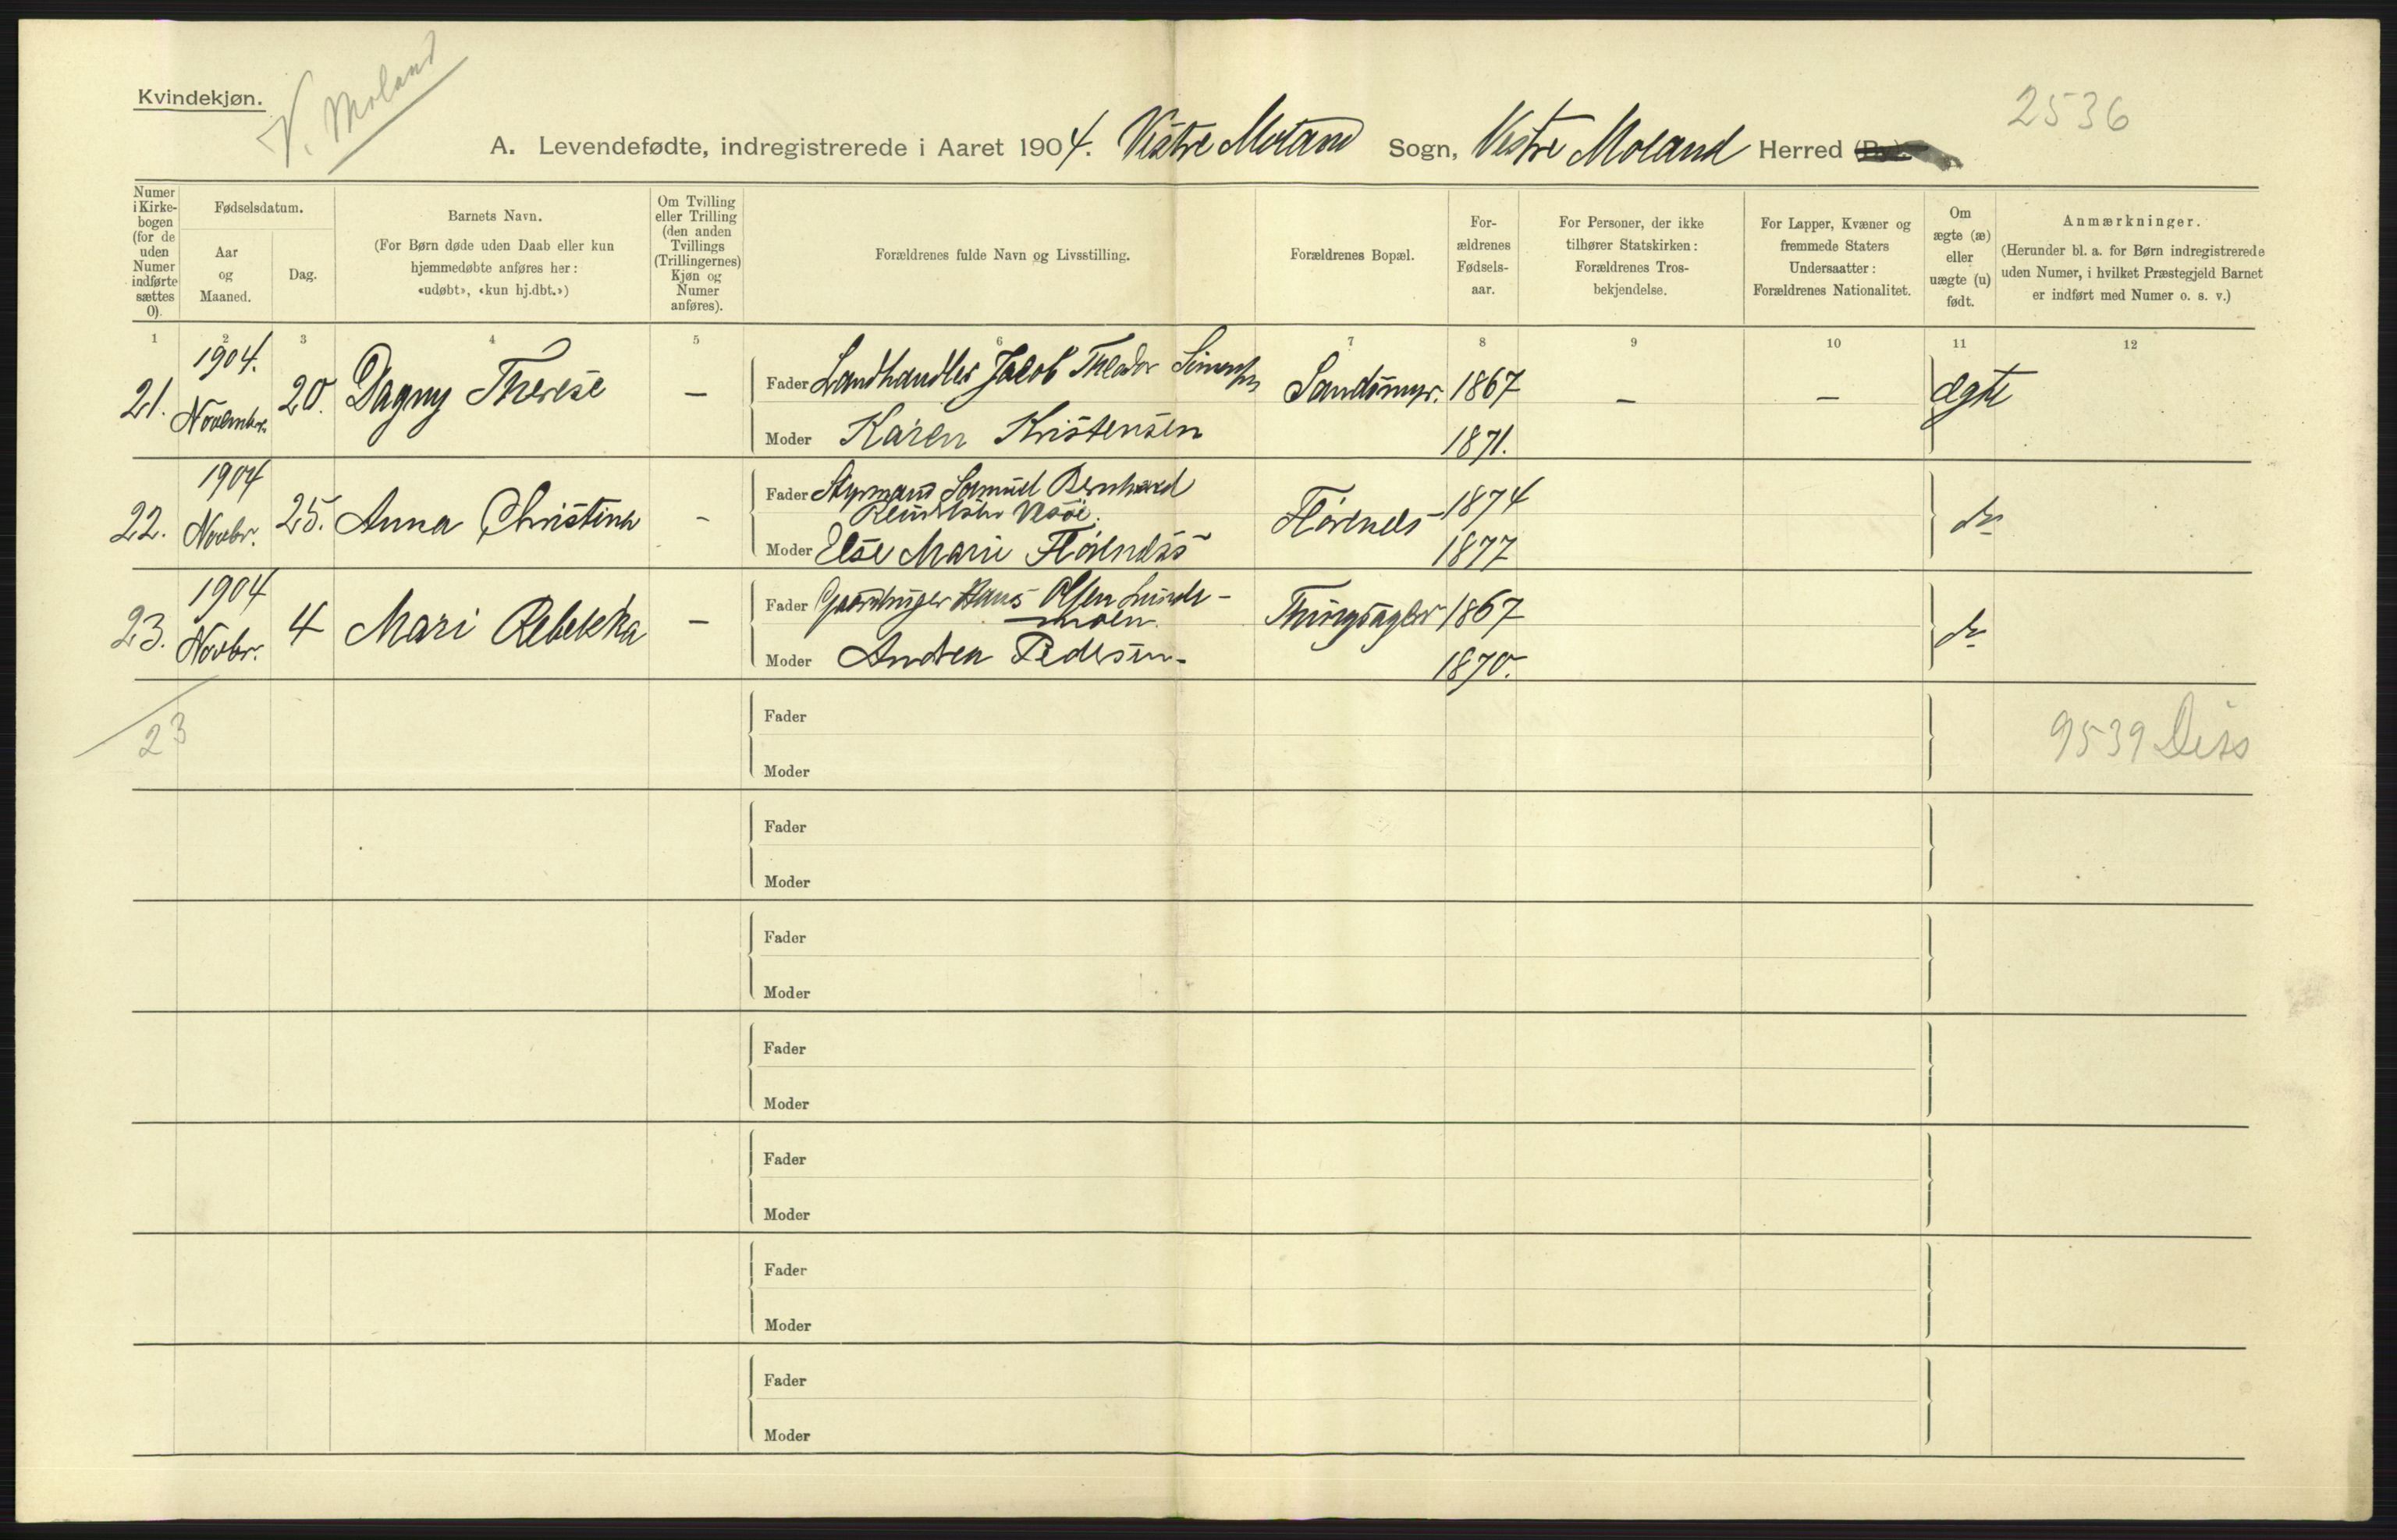 Kvindekjøn.
V. Moland
2536
A. Levendefødte, indregistrerede i Aaret 1904. Vestre Moland Sogn, Vestre Moland Herred
Numer i Kirke-bogen (for de uden Numer indførte sættes 0).
Fødselsdatum.
Aar og Maaned.
Dag.
Barnets Navn.
(For Børn døde uden Daab eller kun hjemmedøbte anføres her: «udøbt», «kun hj.dbt.»)
Om Tvilling eller Trilling (den anden Tvillings (Trillingernes) Kjøn og Numer anføres).
Forældrenes fulde Navn og Livsstilling.
Forældrenes Bopæl.
For-ældrenes Fødsels-aar.
For Personer, der ikke tilhører Statskirken: Forældrenes Tros-bekjendelse.
For Lapper, Kvæner og fremmede Staters Undersaatter: Forældrenes Nationalitet.
Om ægte (æ) eller uægte (u) født.
Anmærkninger.
(Herunder bl. a. for Børn indregistrerede uden Numer, i hvilket Præstegjeld Barnet er indført med Numer o. s. v.)
1 2 3 4 5 6 7 8 9 10 11 12
21. 1904. November 20. Dagny Therese – Fader Landhandler Jacob Theodor Sandsmyr. 1867 – – ægte
Moder Karen Kristensen 1871.
22. 1904 Novbr. 25. Anna Christina - Fader Styrmand Samuel Bernhard 1874 do
Moder Else Marie 1877
23. 1904 Novbr. 4 Mari Rebekka – Fader Gaardbruger Hans Olsen Lunde-
moen. 1867 do
Moder Andrea Pedersen- 1870.
23
9539 Diss
Fader
Moder
Fader
Moder
Fader
Moder
Fader
Moder
Fader
Moder
Fader
Moder
Fader
Moder